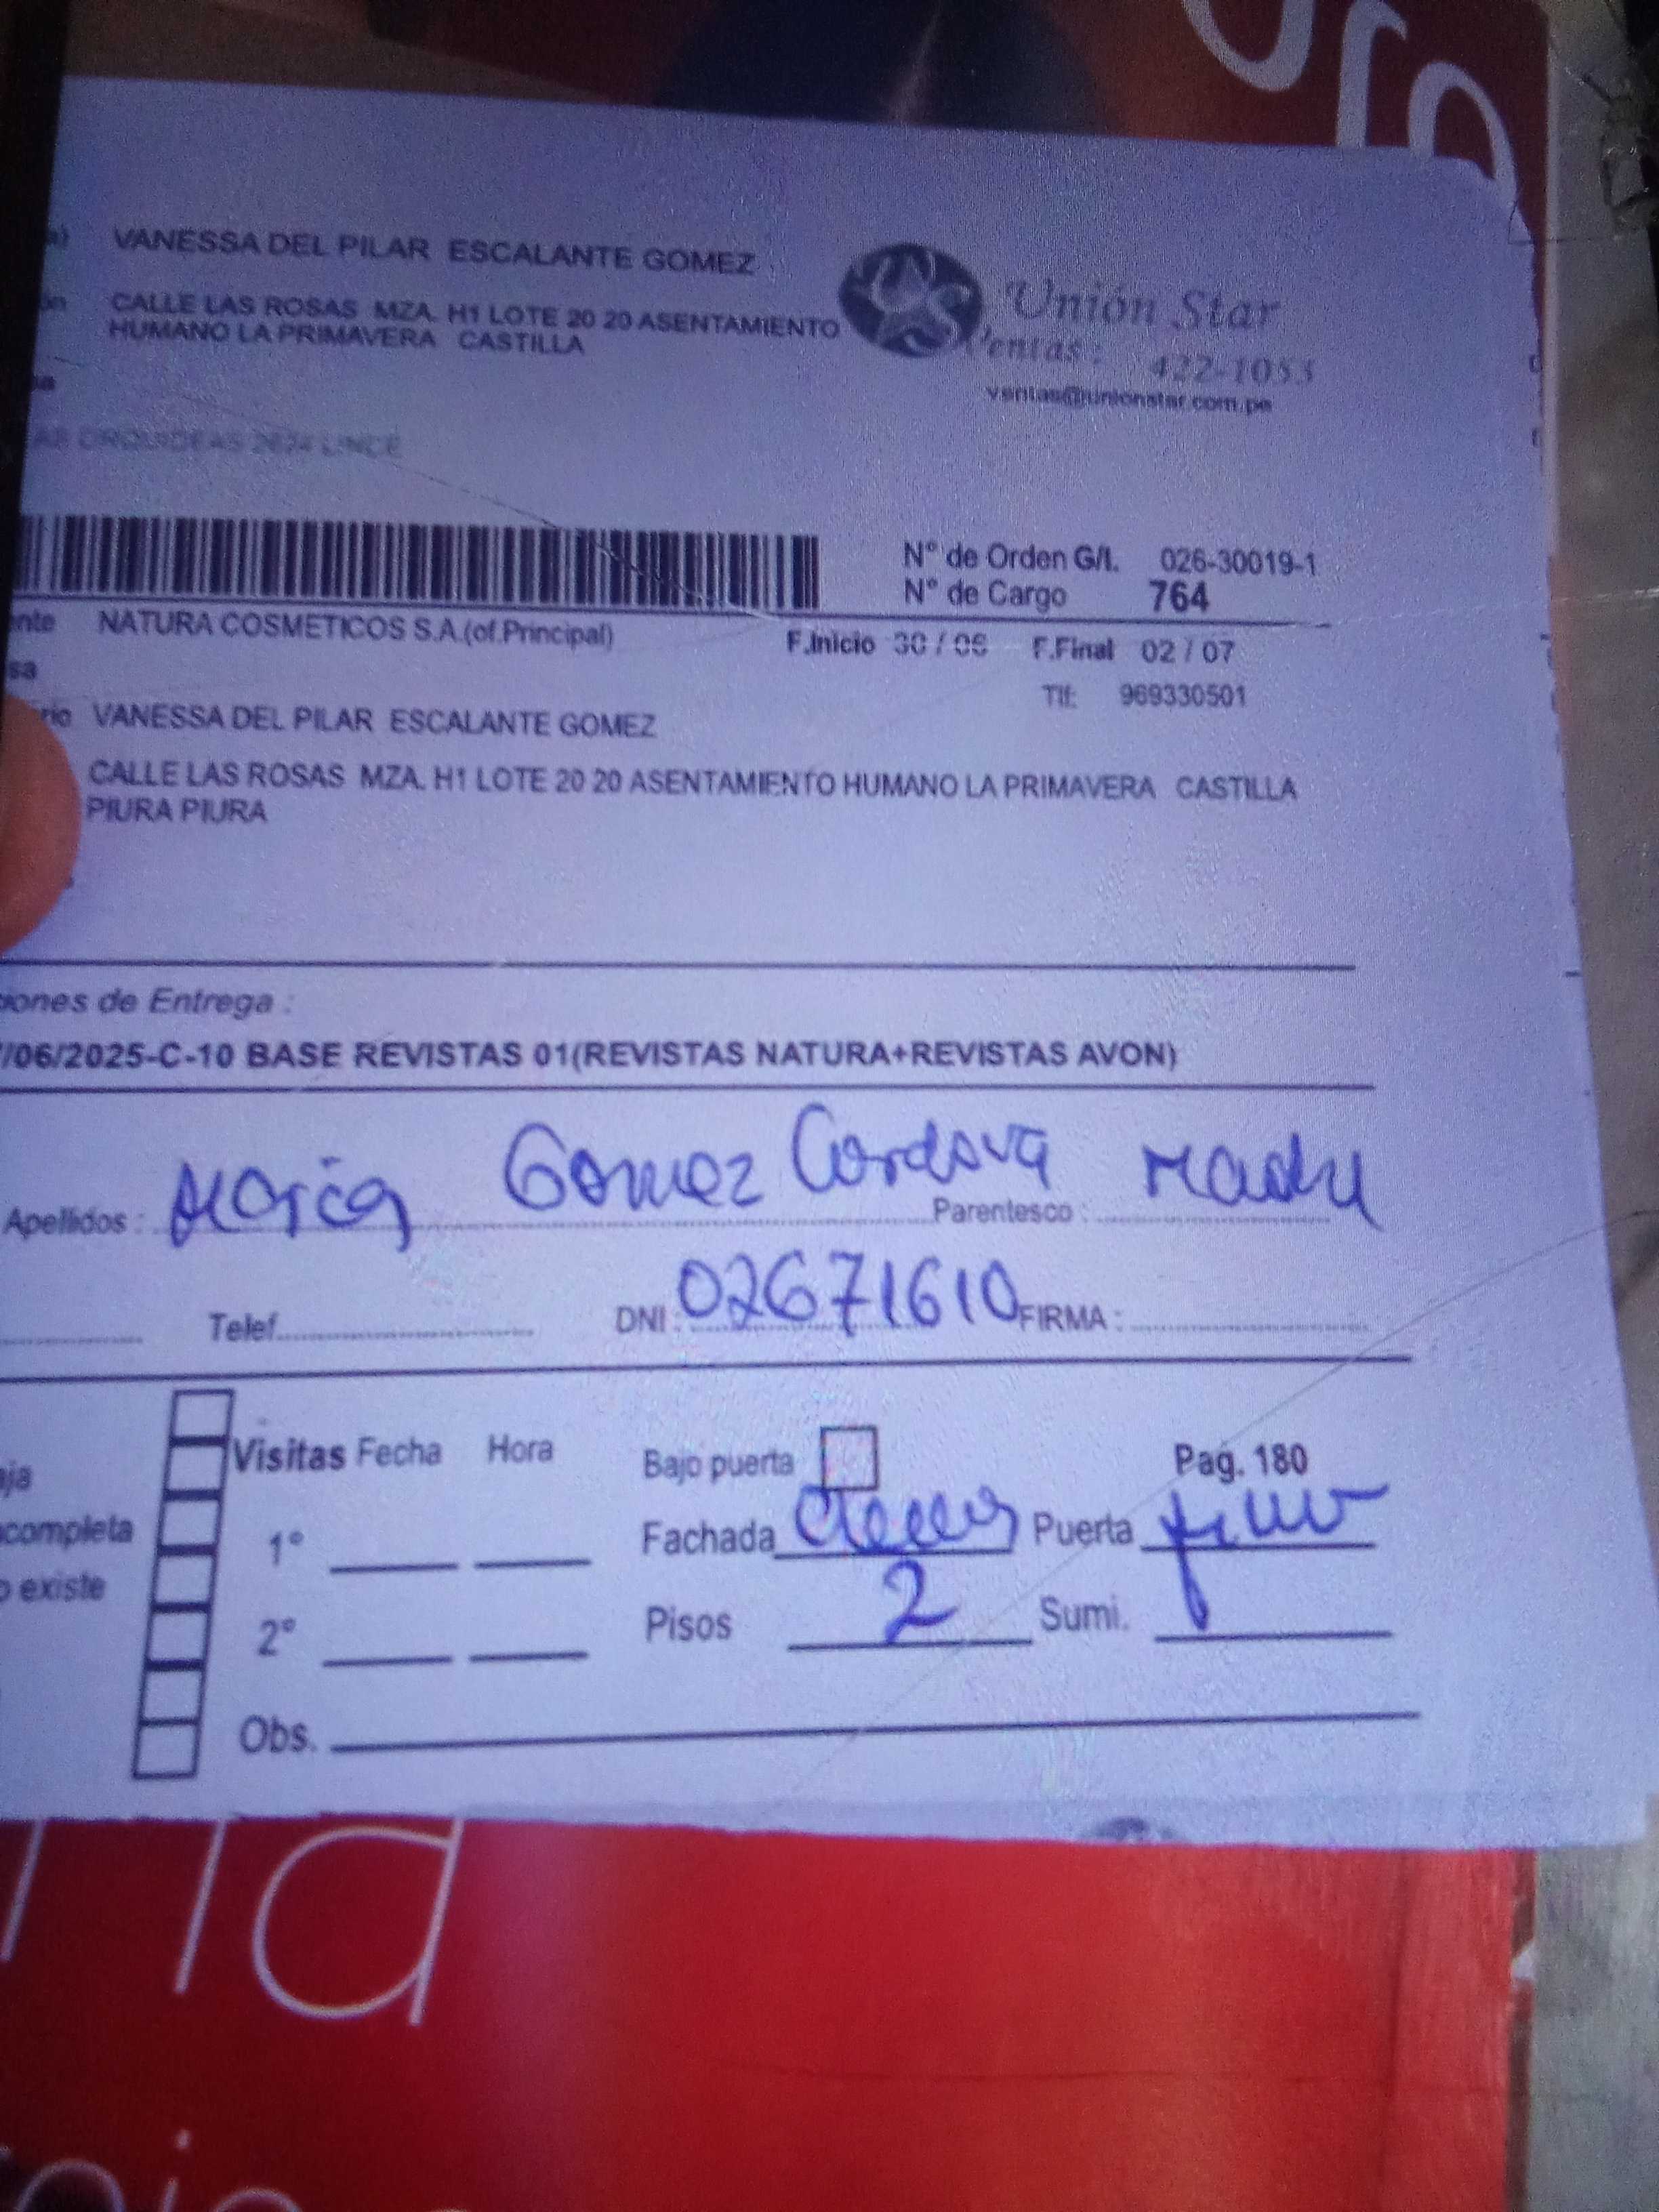 VANESSA DEL PILAR ESCALANTE GOMEZ
Unión Star
CALLE LAS ROSAS MZA. H1 LOTE 20 20 ASENTAMIENTO
HUMANO LA PRIMAVERA CASTILLA
Ventas : 422-1053
ventas@unionstar.com.pe
AS ORQUIDEAS 2674 LINCE
N° de Orden G/l. 026-30019-1
N° de Cargo 764
nte NATURA COSMETICOS S.A.(of.Principal) F.Inicio 30 / 06 F.Final 02 / 07
sa
Tlf: 969330501
rio VANESSA DEL PILAR ESCALANTE GOMEZ
CALLE LAS ROSAS MZA. H1 LOTE 20 20 ASENTAMIENTO HUMANO LA PRIMAVERA CASTILLA
PIURA PIURA
iones de Entrega :
/06/2025-C-10 BASE REVISTAS 01(REVISTAS NATURA+REVISTAS AVON)
Apellidos : María Gomez Cordova Parentesco : Madre
Telef. DNI : 02671610 FIRMA :
Visitas Fecha Hora Bajo puerta Pag. 180
aja
completa 1° Fachada Puerta
o existe
2° Pisos 2 Sumi.
Obs.